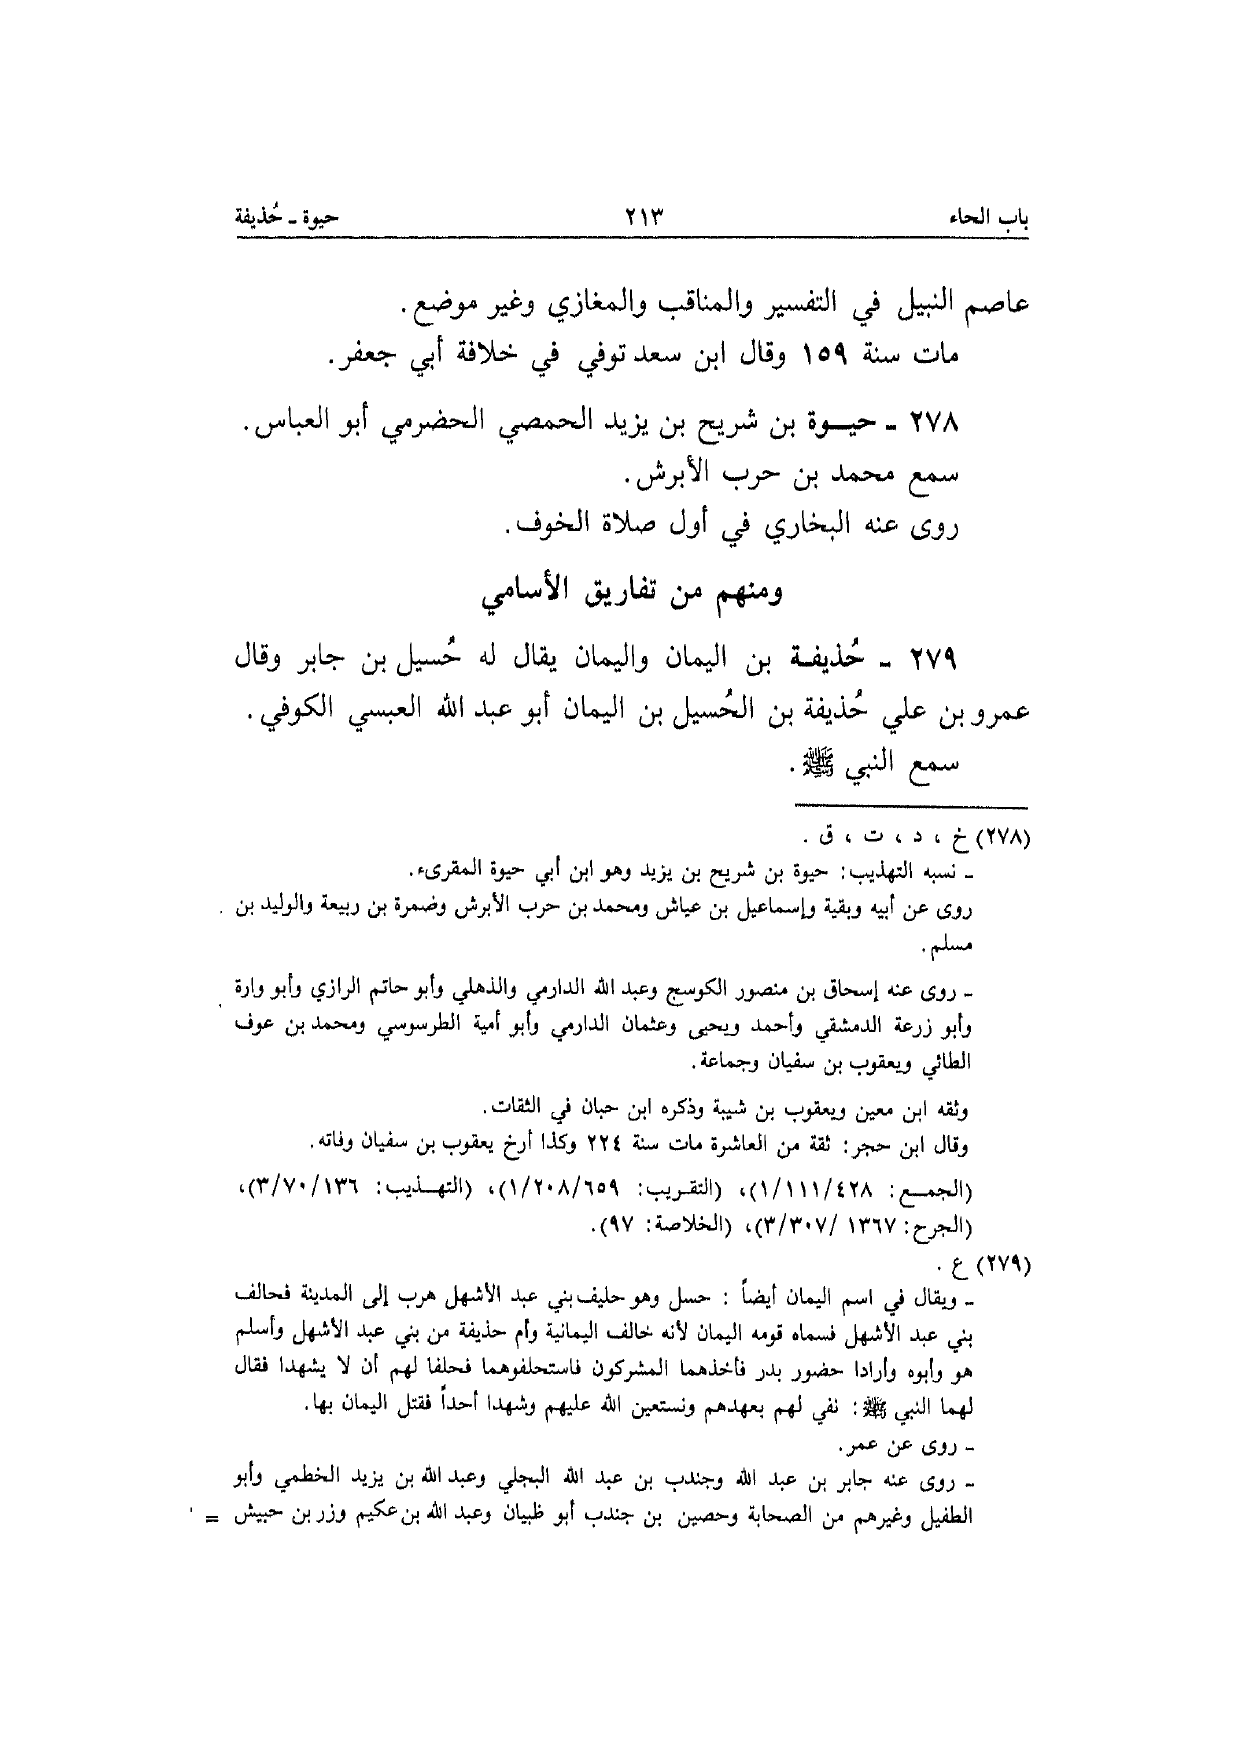 باب الحاء ٢١٣ حيوة ـ حُذيفة
عاصم النبيل في التفسير والمناقب والمغازي وغير موضع .
مات سنة ١٥٩ وقال ابن سعد توفي في خلافة أبي جعفر .
٢٧٨ ـ حيـوة بن شريح بن يزيد الحمصي الحضرمي أبو العباس .
سمع محمد بن حرب الأبرش .
روى عنه البخاري في أول صلاة الخوف .
ومنهم من تفاريق الأسامي
٢٧٩ ـ حُذيفـة بن اليمان واليمان يقال له حُسيل بن جابر وقال
عمرو بن علي حُذيفة بن الحُسيل بن اليمان أبو عبد الله العبسي الكوفي .
سمع النبي ﷺ .
(٢٧٨) خ ، د ، ت ، ق .
ـ نسبه التهذيب : حيوة بن شريح بن يزيد وهو ابن أبي حيوة المقرىء .
روى عن أبيه وبقية وإسماعيل بن عياش ومحمد بن حرب الأبرش وضمرة بن ربيعة والوليد بن
مسلم .
ـ روى عنه إسحاق بن منصور الكوسج وعبد الله الدارمي والذهلي وأبو حاتم الرازي وأبو وارة
وأبو زرعة الدمشقي وأحمد ويحيى وعثمان الدارمي وأبو أمية الطرسوسي ومحمد بن عوف
الطائي ويعقوب بن سفيان وجماعة .
وثقه ابن معين ويعقوب بن شيبة وذكره ابن حبان في الثقات .
وقال ابن حجر : ثقة من العاشرة مات سنة ٢٢٤ وكذا أرخ يعقوب بن سفيان وفاته .
(الجمـع : ١/١١١/٤٢٨)، (التقريب : ١/٢٠٨/٦٥٩)، (التهـذيب : ٣/٧٠/١٣٦)،
(الجرح : ٣/٣٠٧/ ١٣٦٧)، (الخلاصة : ٩٧).
(٢٧٩) ع .
ـ ويقال في اسم اليمان أيضاً : حسل وهو حليف بني عبد الأشهل هرب إلى المدينة فحالف
بني عبد الأشهل فسماه قومه اليمان لأنه حالف اليمانية وأم حذيفة من بني عبد الأشهل وأسلم
هو وأبوه وأرادا حضور بدر فأخذهما المشركون فاستحلفوهما فحلفا لهم أن لا يشهدا فقال
لهما النبي ﷺ : نفي لهم بعهدهم ونستعين الله عليهم وشهدا أحداً فقتل اليمان بها .
ـ روى عن عمر .
ـ روى عنه جابر بن عبد الله وجندب بن عبد الله البجلي وعبد الله بن يزيد الخطمي وأبو
الطفيل وغيرهم من الصحابة وحصين بن جندب أبو ظبيان وعبد الله بن عكيم وزر بن حبيش =